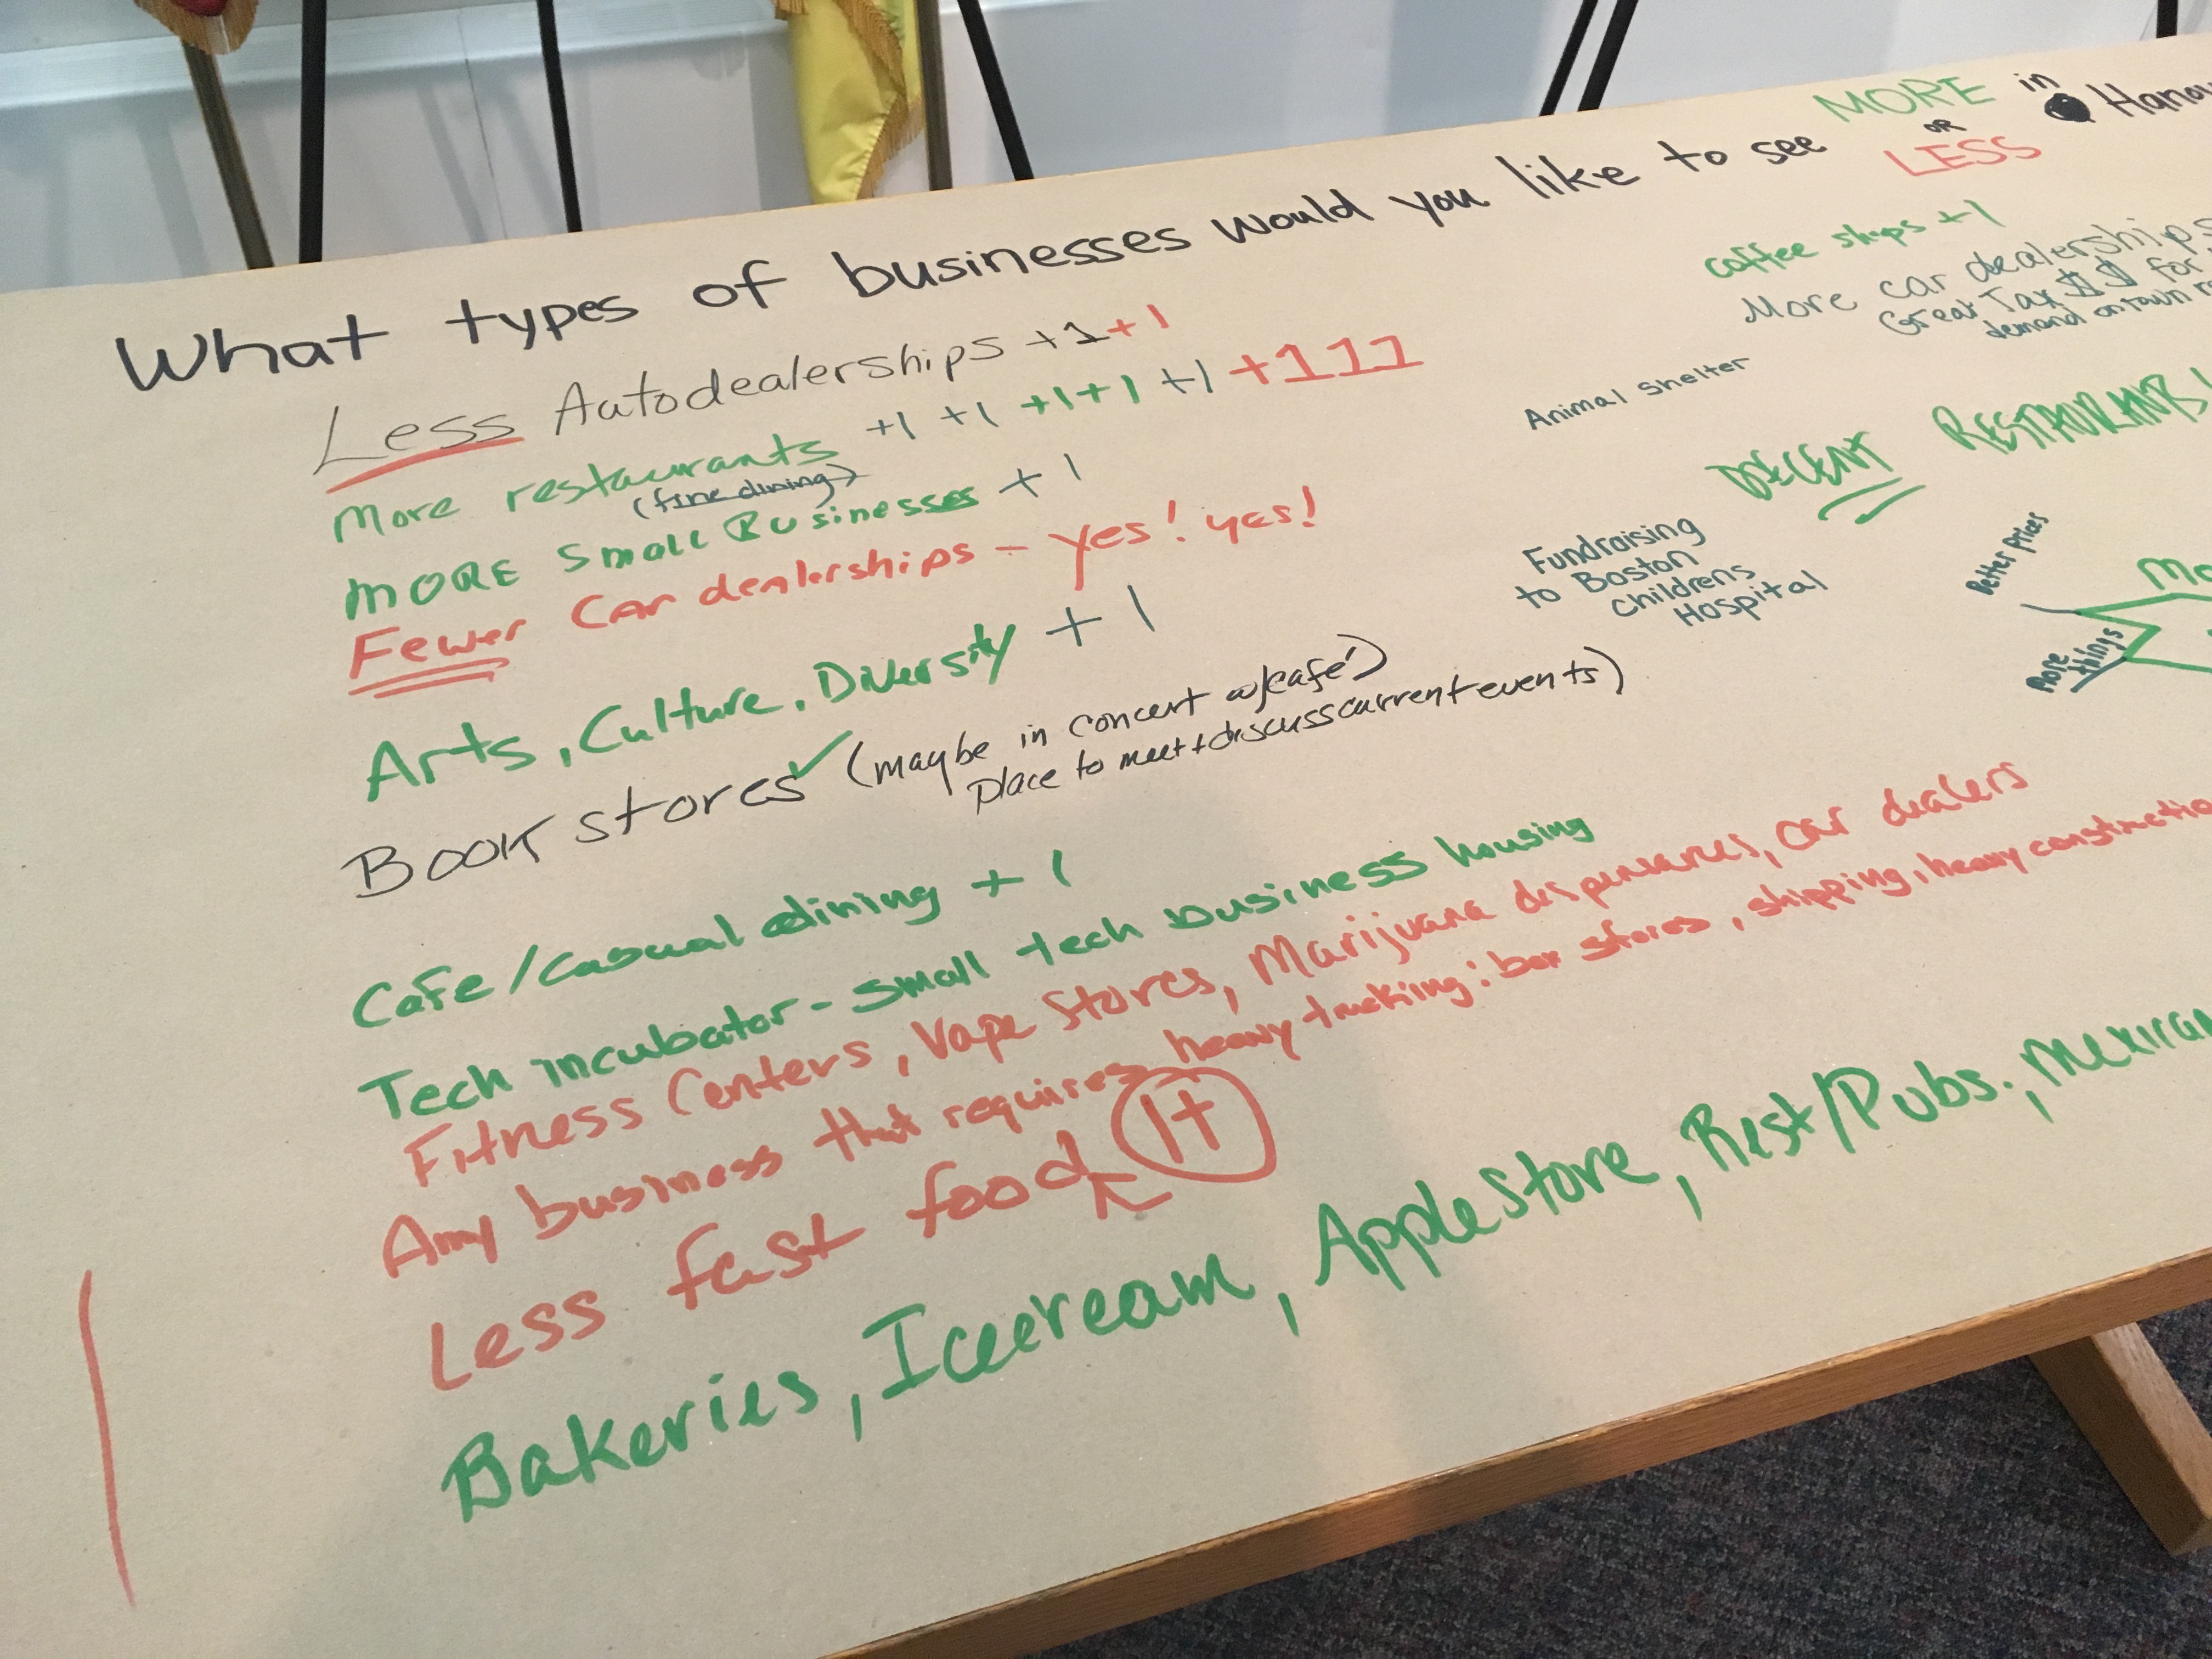 What types of businesses would you like to see MORE or LESS in
Less Autodealerships +1 +1
More restaurants +1 +1 +1 +1 +1 +111
(fine dining)
MORE Small Businesses +1
Fewer Car dealerships - yes! yes!
Arts, Culture, Diversity +1
Book stores ✓ (maybe in concert w/café)
Place to meet + discuss current events)
Cafe/casual dining +1
Tech incubator - small tech business housing
Fitness Centers, Vape Stores, Marijuana dispensaries, car dealers
Any business that requires heavy trucking: box stores, shipping, heavy
Less fast food 1+
Bakeries, Icecream, Apple Store, Rest/Pubs.,
coffee shops +1
More car dealerships
Great Tax $$ for
demand on town
Animal Shelter
DECENT RESTAURANTS!
Fundraising
to Boston
Childrens
Hospital
Better prices
More
things